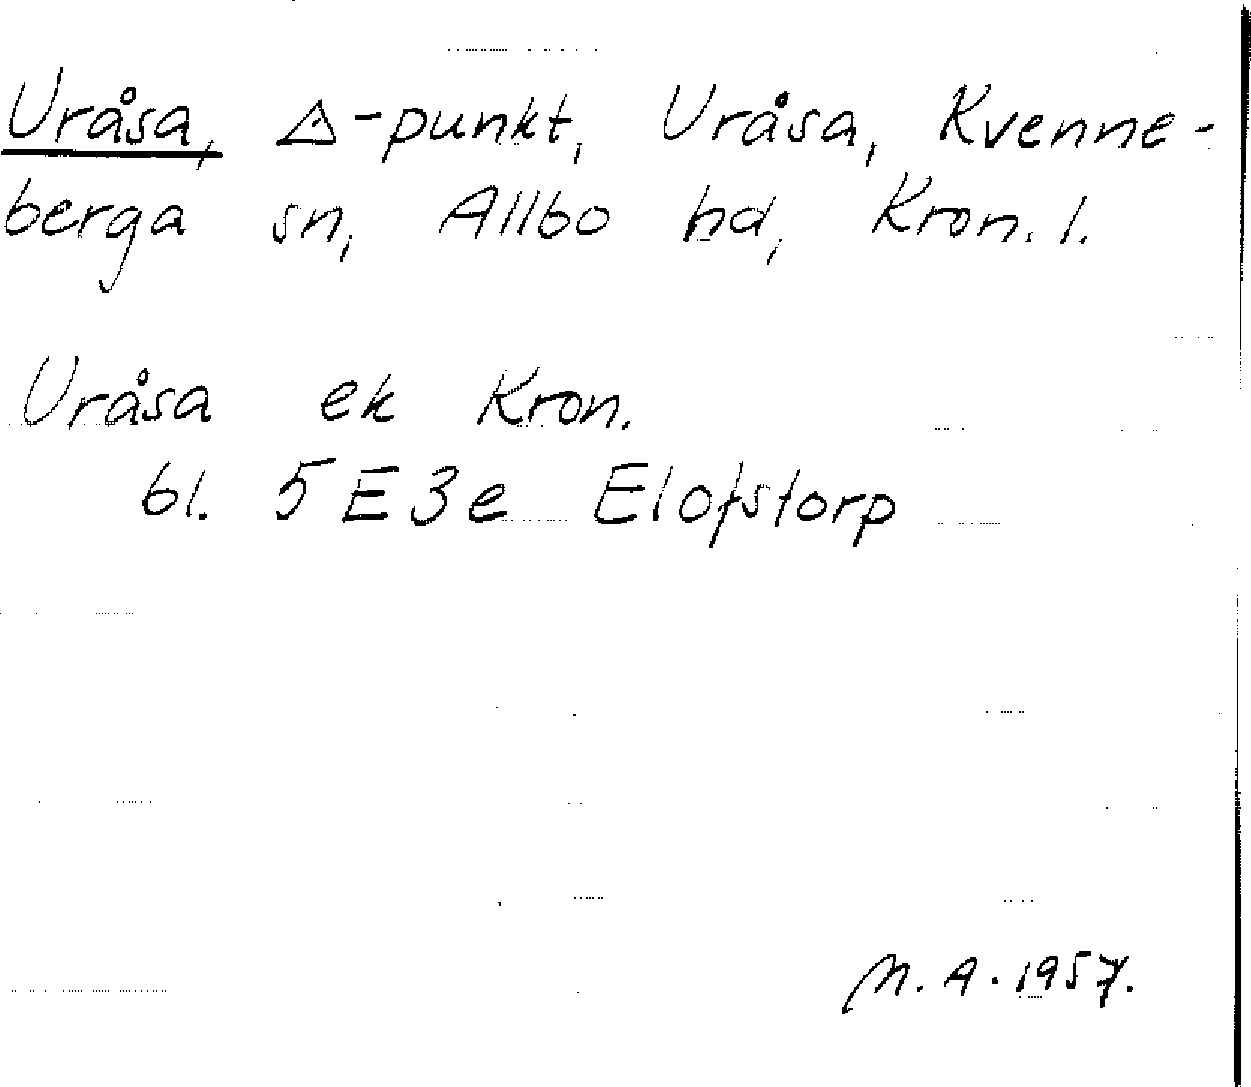 Uråsa, △-punkt, Uråsa, Kvenne-
berga sn, Allbo hd, Kron. l.
Uråsa ek Kron.
bl. 5E3e Elofstorp
M. A. 1957.